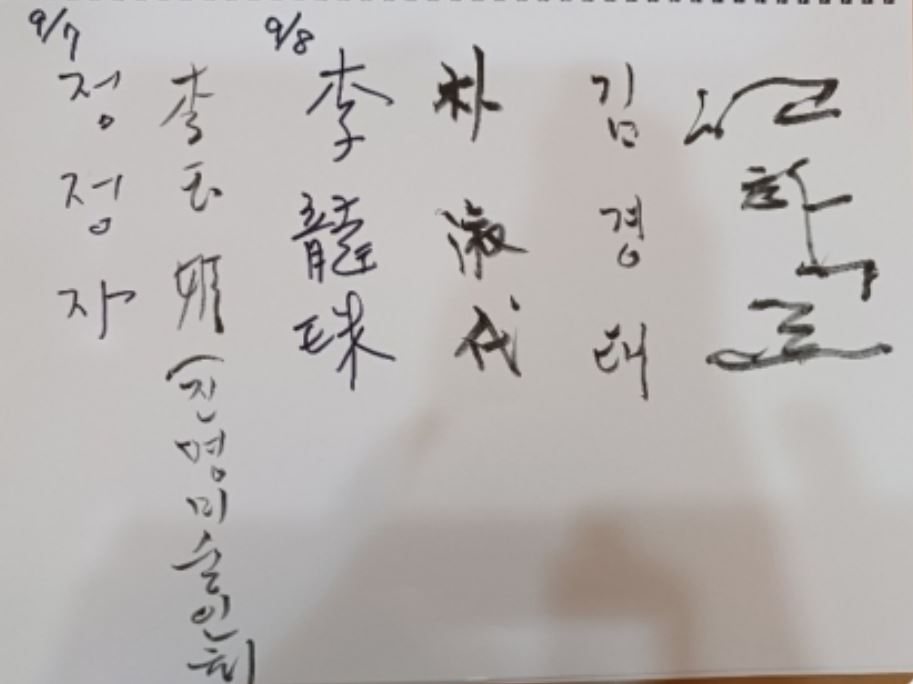 9/7
정정자
李玉
(진명미술인회
9/8
李龍珠
朴淑代
김경태